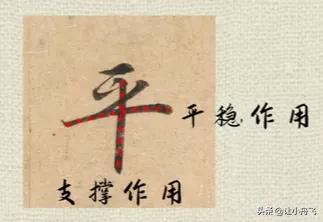 平
平稳作用
支撑作用
头条@让小舟飞